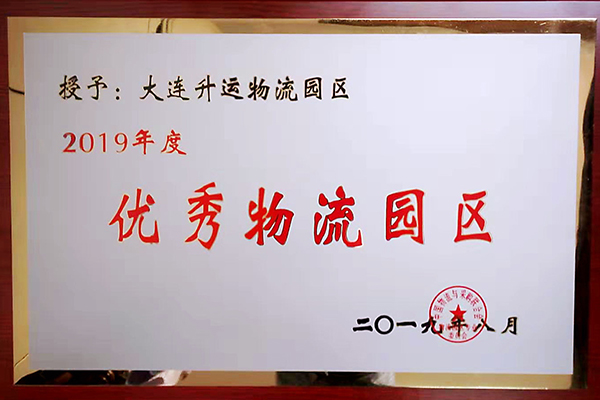 授予：大连升运物流园区
2019年度
优秀物流园区
中国物流与采购联合会
二〇一九年八月